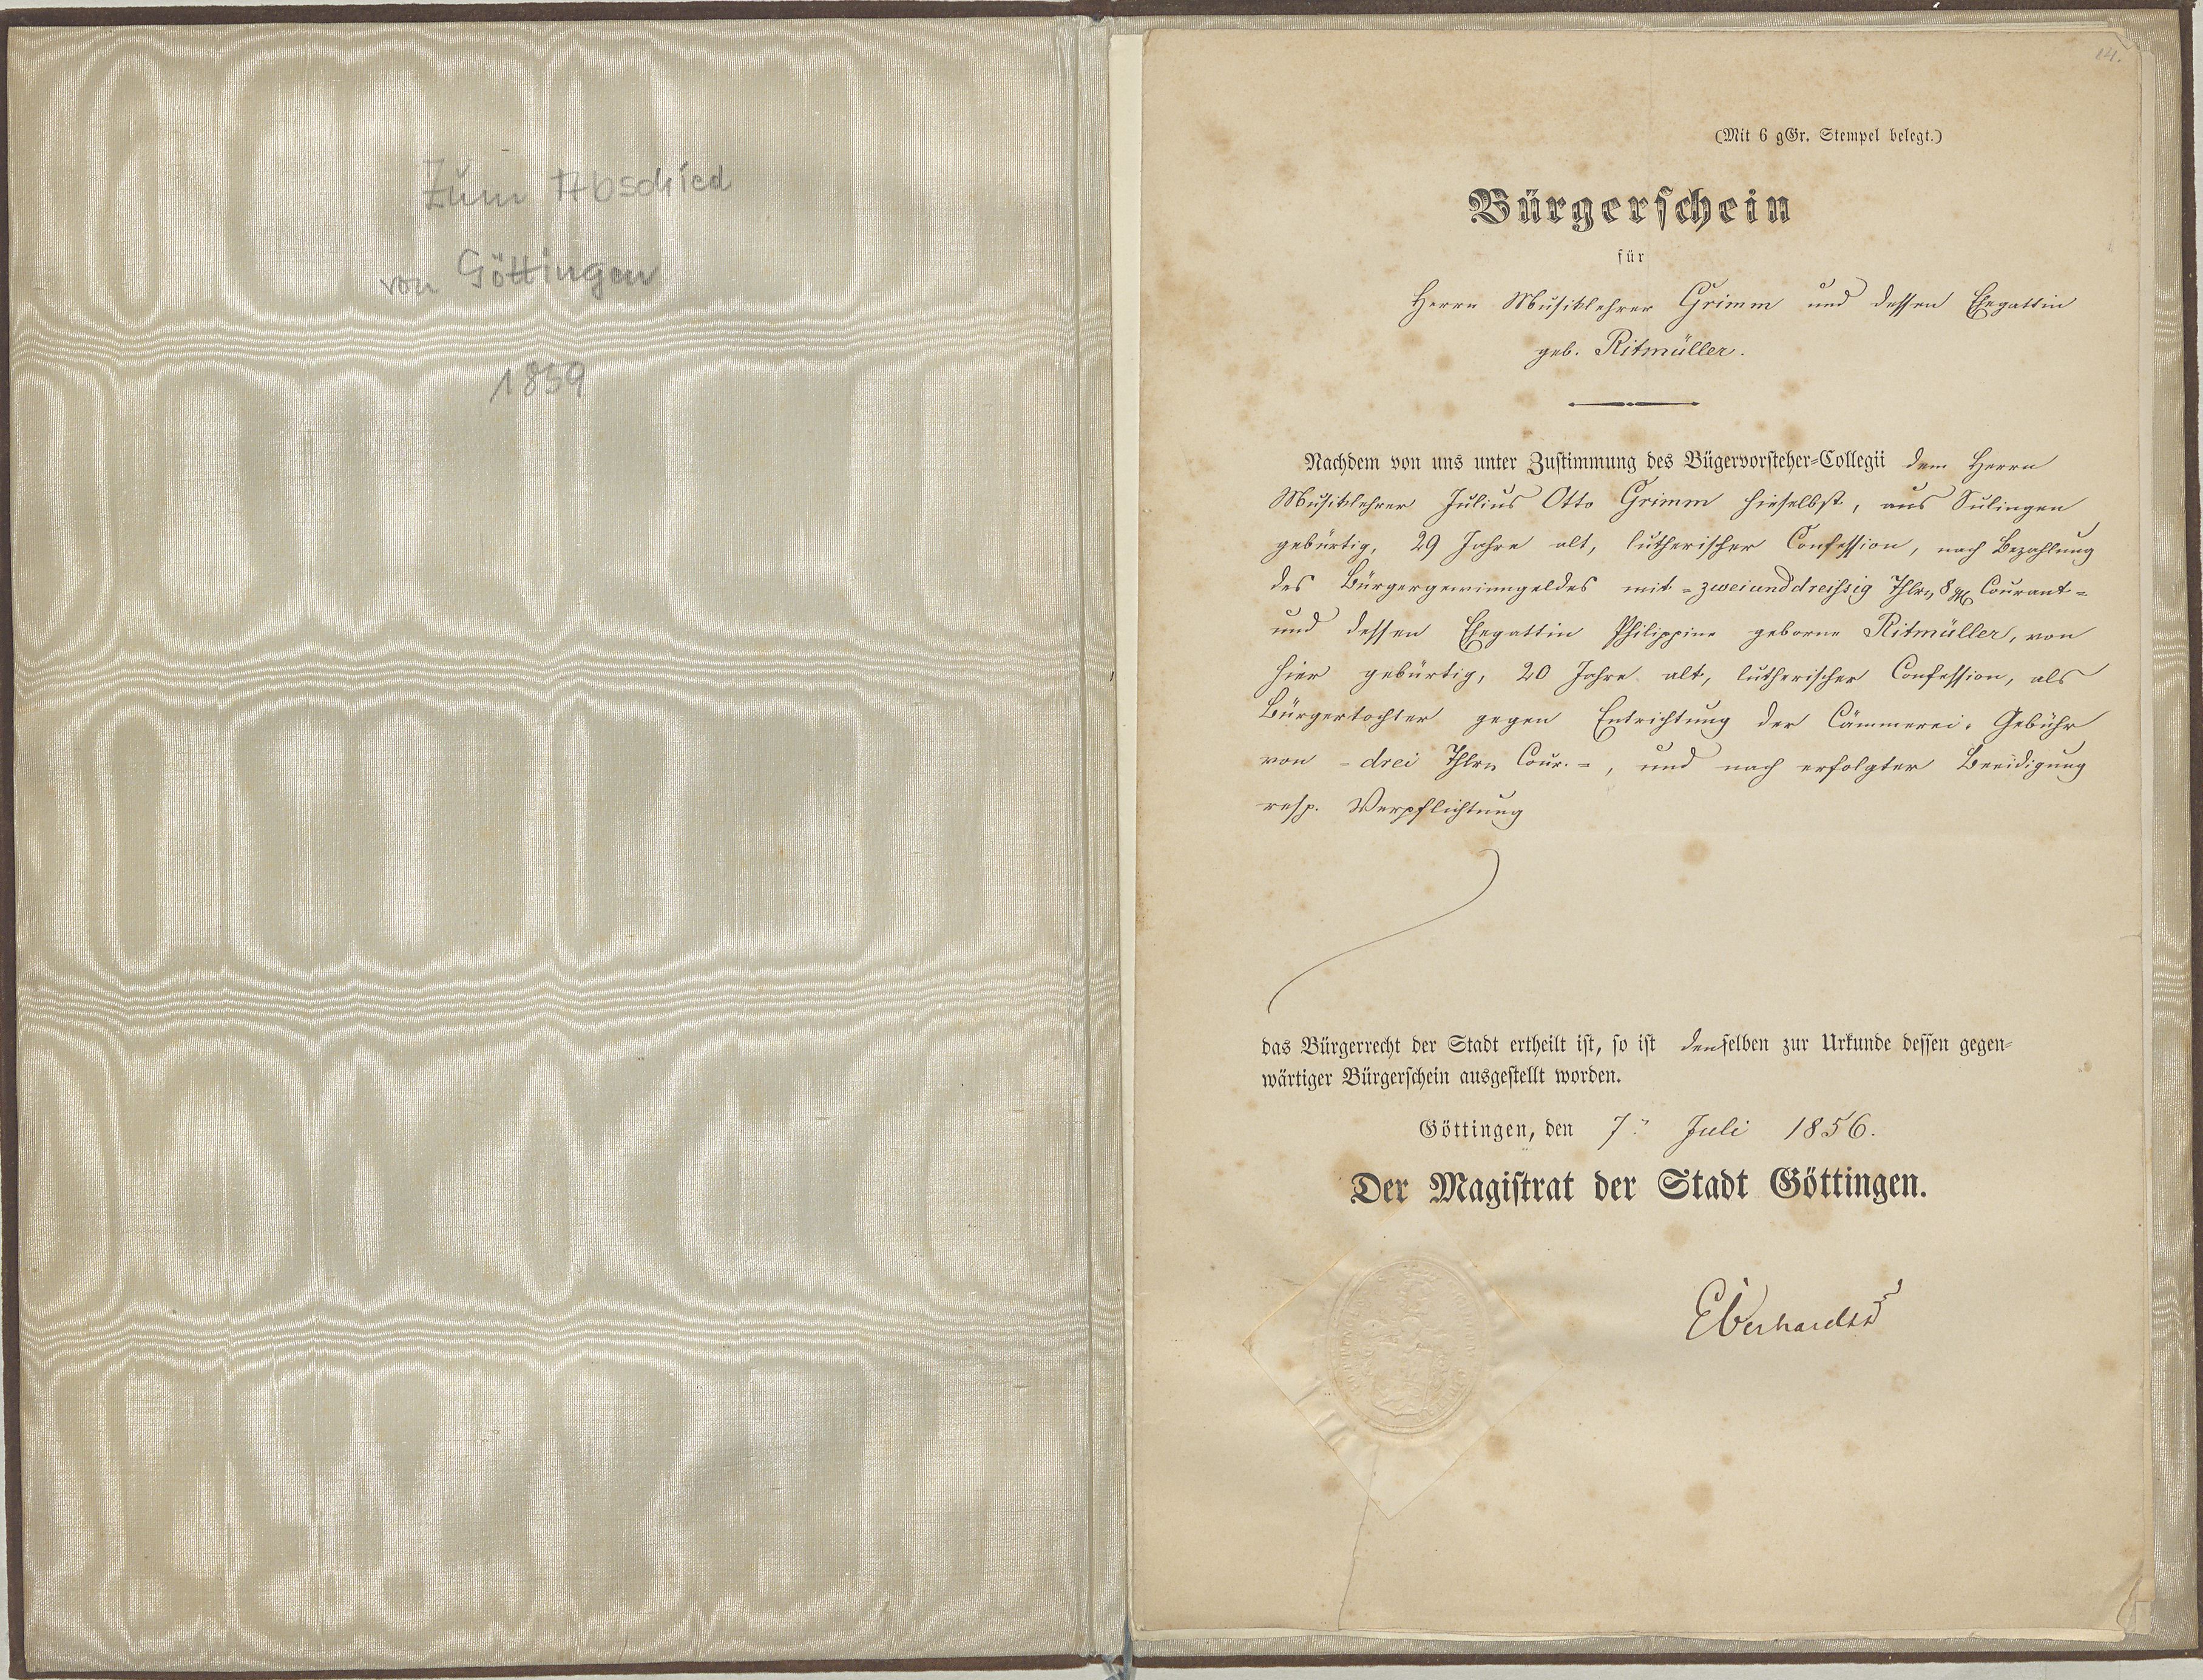 Zum Abschied
von Göttingen
1859
14.
(Mit 6 gGr. Stempel belegt.)
Bürgerschein
für
Herrn Musiklehrer Grimm und dessen Ehegattin
geb. Ritmüller.
Nachdem von uns unter Zustimmung des Bügervorsteher-Collegii dem Herrn
Musiklehrer Julius Otto Grimm hieselbst, aus Sulingen
gebürtig, 29 Jahre alt, lutherischer Confession, nach Bezahlung
des Bürgergewinngeldes mit = zweiunddreissig Thlrn 8 Courant =
und dessen Ehegattin Philippine geborne Ritmüller, von
hier gebürtig, 20 Jahre alt, lutherischer Confession, als
Bürgertochter gegen Entrichtung der Cämmerei-Gebühr
von = drei Thlrn Cour. =, und nach erfolgter Beeidigung
resp. Verpflichtung
das Bürgerrecht der Stadt ertheilt ist, so ist denselben zur Urkunde dessen gegen-
wärtiger Bürgerschein ausgestellt worden.
Göttingen, den 7. Juli 1856.
Der Magistrat der Stadt Göttingen.